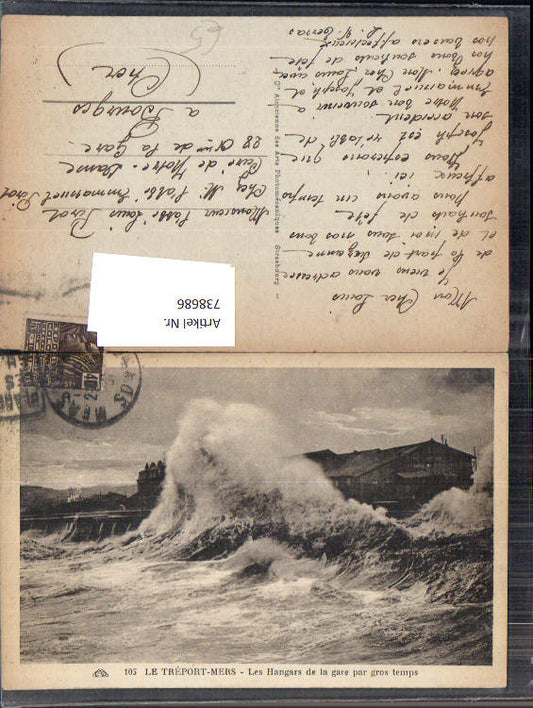 Mon Cher Louis
Je viens vous adresser
de la part de Suzanne
et de moi tous nos bons
souhaits de fête.
Nous avons un temps
affreux ici.
Nous espérons que
Joseph est rétabli de
son accident.
Notre bon souvenir à
Emmanuel et Joseph et
agréez, Mon Cher Louis avec
nos bons souhaits de fête
nos baisers affectueux
Cie Alsacienne des Arts Photomécaniques - Strasbourg
Monsieur l'abbé Louis
Chez M. l'abbé Emmanuel
Curé de Notre-Dame
28 de la Gare
à Bourges
(Cher)
Artikel Nr.
738686
105 LE TRÉPORT-MERS - Les Hangars de la gare par gros temps